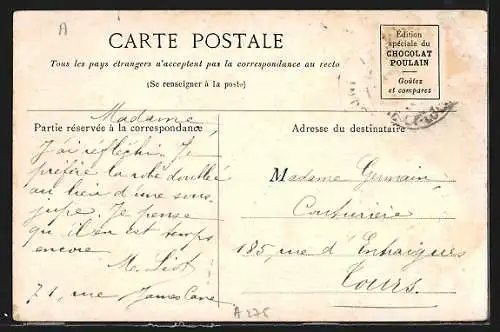 A
CARTE POSTALE
Tous les pays étrangers n'acceptent pas la correspondance au recto
(Se renseigner à la poste)
Edition
spéciale du
CHOCOLAT
POULAIN
Goûtez
et comparez
Partie réservée à la correspondance
Adresse du destinataire
Madame,
J'ai réfléchi. Je
préfère la robe doublée
au lieu d'une sous-
jupe. Je pense
qu'il en est temps
encore
M.
71, rue James Cane
Madame Germain
Couturière
185, rue d'Entraigues
Tours.
A 276